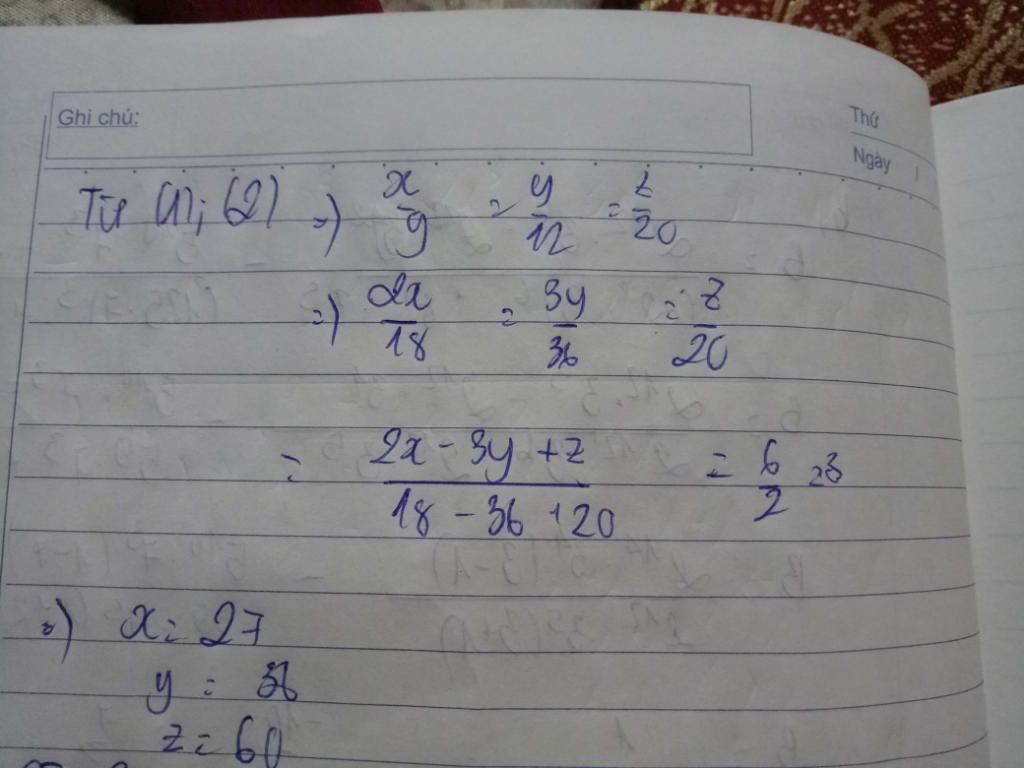 Ghi chú:
Thứ
Ngày
Từ (1); (2) => x/9 = y/12 = z/20
=> 2x/18 = 3y/36 = z/20
= (2x - 3y + z)/(18 - 36 + 20) = 6/2 = 3
=> x = 27
y = 36
z = 60